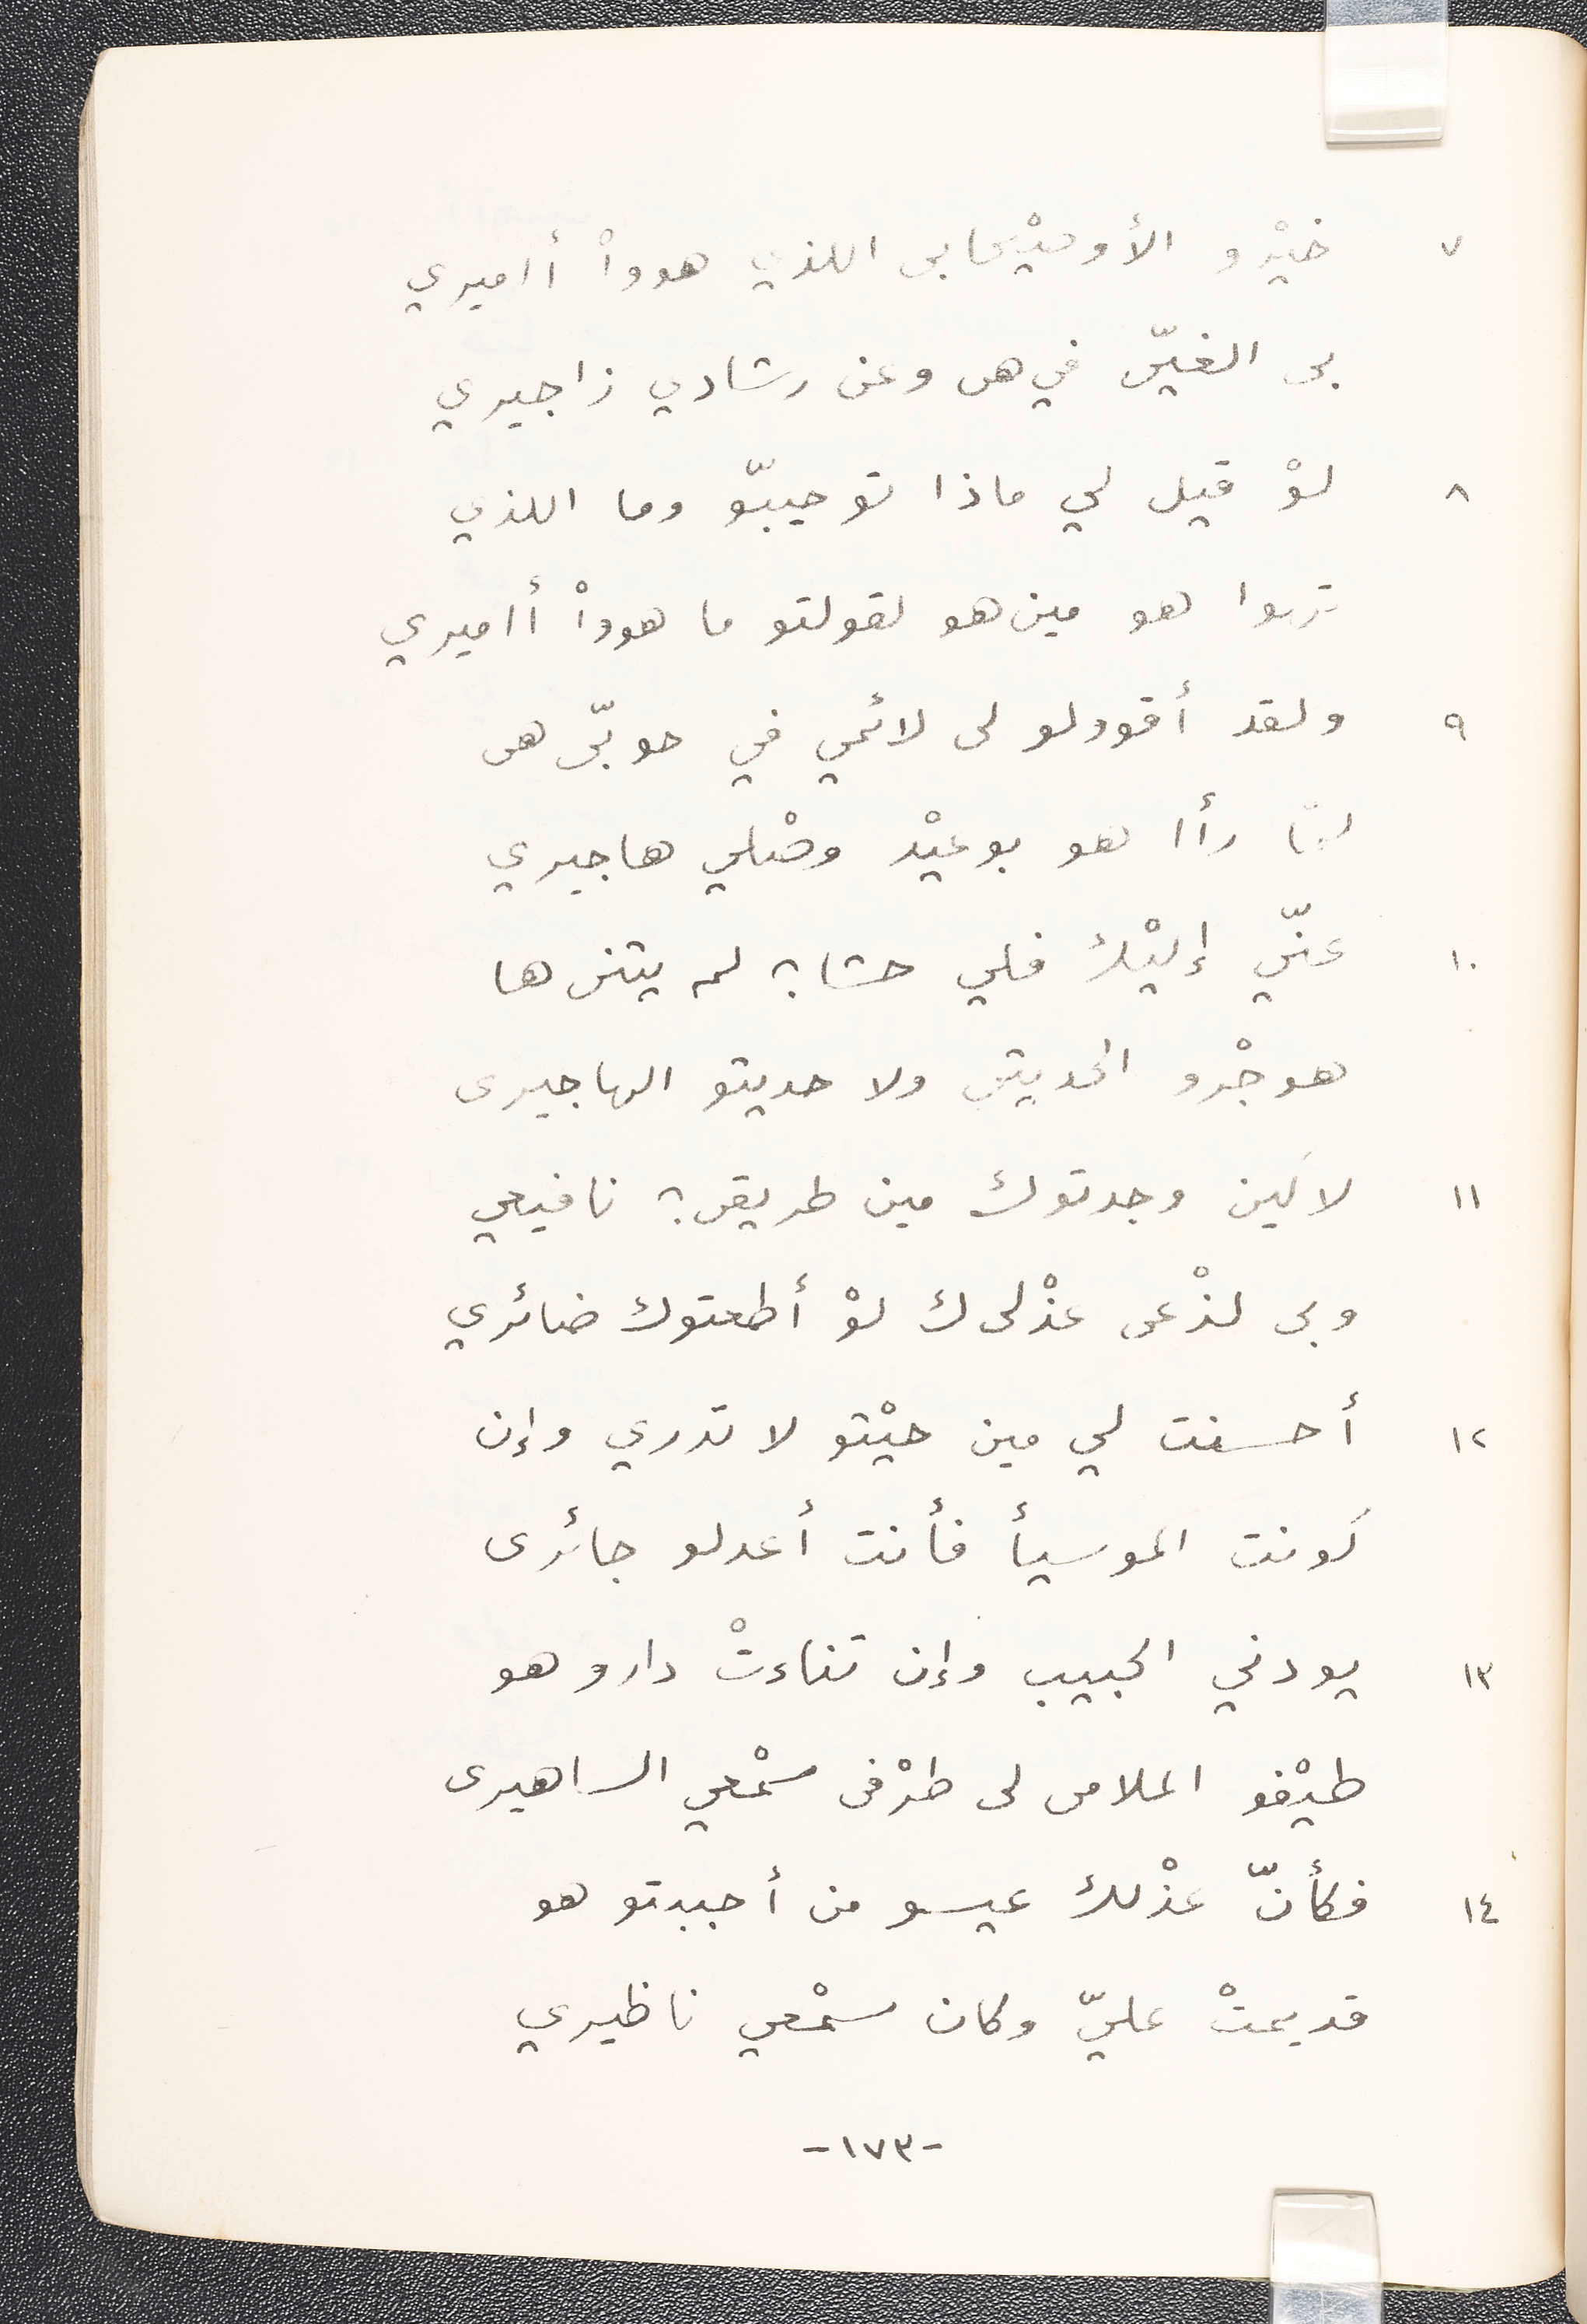 ٧ خيْرو الأوصيْحابى اللذي هوواْ أاميري
بى الغيّى في هى وعن رشادي زاجيري
٨ لوْ قيل لي ماذا توحيبّو وما اللذي
تهوا هو مين هو لقولتو ما هوواْ أاميري
٩ ولقد أقوولو لى لائمي في حوبّى هى
لمّا رأا هو بوعيْد وصْلي هاجيري
١٠ عنّي إليْك فلي حشا؟ لم يثنى ها
هوجْرو الحديثى ولا حديثو الهاجيرى
١١ لاكين وجدتوك مين طريقى؟ نافيعي
وبى لذْعى عذْلى ك لوْ أطعتوك ضائري
١٢ أحسنت لي مين حيْثو لا تدري وإن
كونت الموسيأ فأنت أعدلو جائرى
١٣ يودني الحبيب وإن تناءتْ دارو هو
طيْفو الملامى لى طرْفى سمْعي الساهيرى
١٤ فكأنّ عذْلك عيسو من أحببتو هو
قديمتْ عليّ وكان سمْعي ناظيري
-١٧٣-